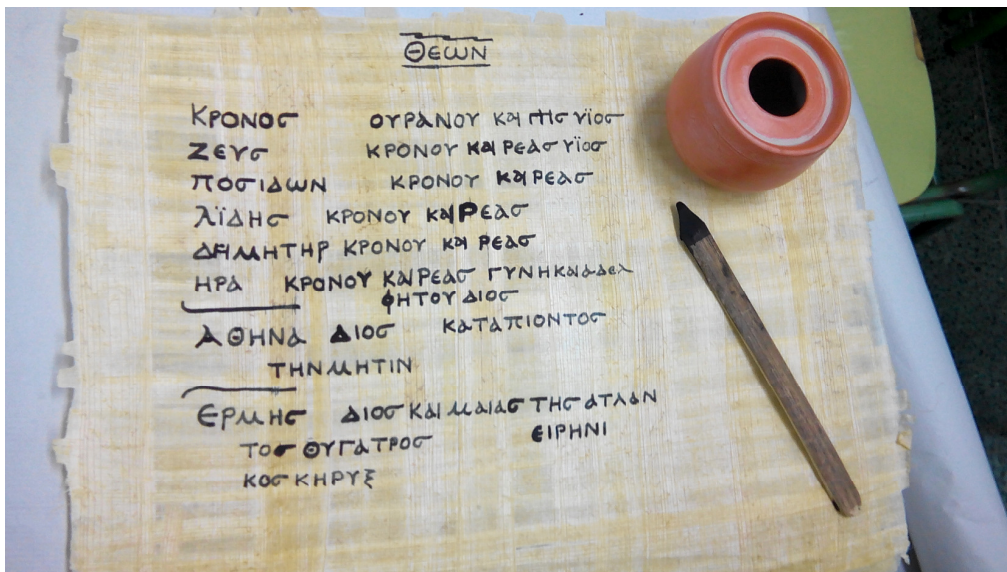 ΘΕΩΝ
ΚΡΟΝΟΣ ΟΥΡΑΝΟΥ ΚΑΙ ΓΗΣ ΥΪΟΣ
ΖΕΥΣ ΚΡΟΝΟΥ ΚΑΙ ΡΕΑΣ ΥΪΟΣ
ΠΟΣΙΔΩΝ ΚΡΟΝΟΥ ΚΑΙ ΡΕΑΣ
ΑΪΔΗΣ ΚΡΟΝΟΥ ΚΑΙ ΡΕΑΣ
ΔΗΜΗΤΗΡ ΚΡΟΝΟΥ ΚΑΙ ΡΕΑΣ
ΗΡΑ ΚΡΟΝΟΥ ΚΑΙ ΡΕΑΣ ΓΥΝΗ ΚΑΙ ΑΔΕΛ
ΦΗ ΤΟΥ ΔΙΟΣ
ΑΘΗΝΑ ΔΙΟΣ ΚΑΤΑΠΙΟΝΤΟΣ
ΤΗΝ ΜΗΤΙΝ
ΕΡΜΗΣ ΔΙΟΣ ΚΑΙ ΜΑΙΑΣ ΤΗΣ ΑΤΛΑΝ
ΤΟΣ ΘΥΓΑΤΡΟΣ ΕΙΡΗΝΙ
ΚΟΣ ΚΗΡΥΞ